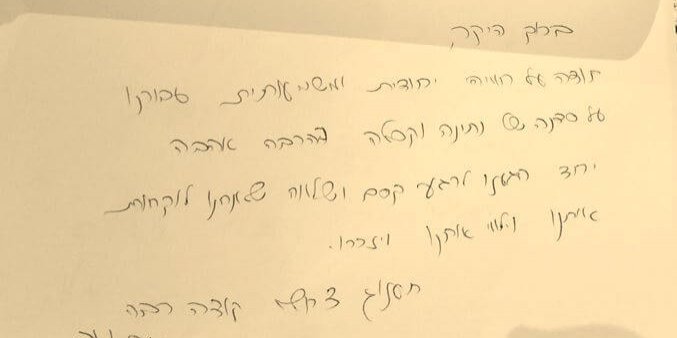 ברוך היקר,
תודה על חוויה יחודית ומשמעותית עבורנו
על סדנה של נתינה וקבלה בהרבה אהבה
יחד הגענו לרגעי קסם ושלווה שאנחנו לוקחות
איתנו וילוו אותנו ויזכרו.
תודה רבה